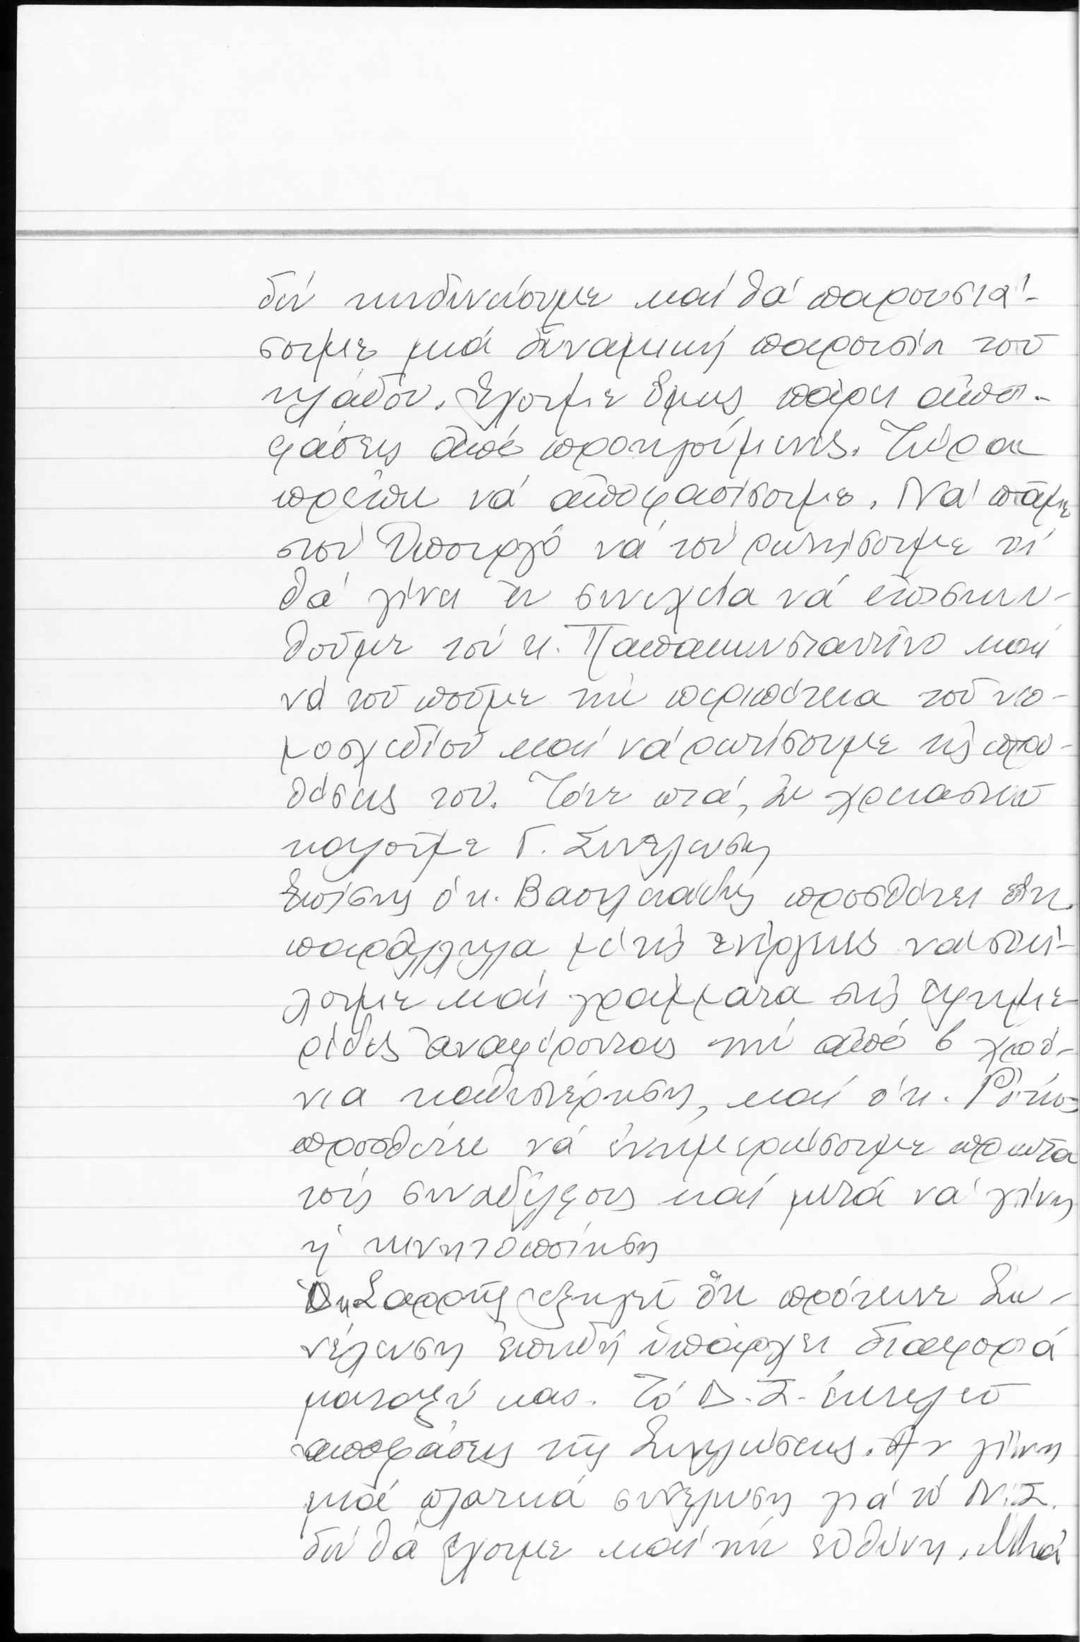 δέν κινδυνεύουμε καί θά παρουσιά-
σουμε μιά δυναμική παρουσία τού
κλάδου. Έχουμε όμως πάρει απο-
φάσεις από προηγούμενες. Τώρα
πρέπει νά αποφασίσουμε. Νά πάμε
στόν Υπουργό νά τόν ρωτήσουμε τί
θά γίνει εν συνεχεία νά επισκεφ-
θούμε τόν κ. Παπακωνσταντίνο καί
νά τού πούμε τήν περιπέτεια τού νο-
μοσχεδίου καί νά ρωτήσουμε τίς προ-
θέσεις του. Τότε πιά, άν χρειαστεί
καλούμε Γ. Συνέλευση
Επίσης ό κ. Βασιλειάδης προσθέτει ότι
παράλληλα μέ τίς ενέργειες νά στεί-
λουμε καί γράμματα στίς εφημε
ρίδες αναφέροντας τήν από 6 χρό-
νια καθυστέρηση, καί ό κ.
προσθέτει νά ενημερώσουμε πρώτα
τούς συναδέλφους καί μετά νά γίνη
ή κινητοποίηση
Ό κ Σαρρής εξηγεί ότι πρότεινε Συ-
νέλευση επειδή υπάρχει διαφορά
μεταξύ μας. Τό Δ.Σ. εκτελεί
αποφάσεις τής Συνελεύσεως. Άν γίνη
μιά πλατειά συνέλευση γιά τό Ν.Σ.
δέν θά έχουμε καί τήν ευθύνη. Μιά